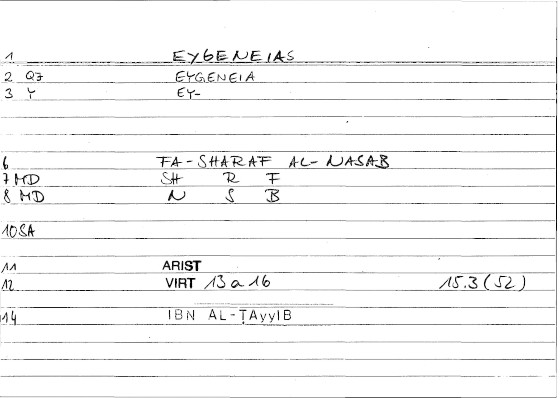 1 EYGENEIAS
2 Q7 EYGENEIA
3 Y EY-
6 FA-SHARAF AL-NASAB
7 MD SH R F
8 MD N S B
10 SA
11 ARIST
12 VIRT 13 a 16 15.3 (52)
14 IBN AL-ṬAyyIB